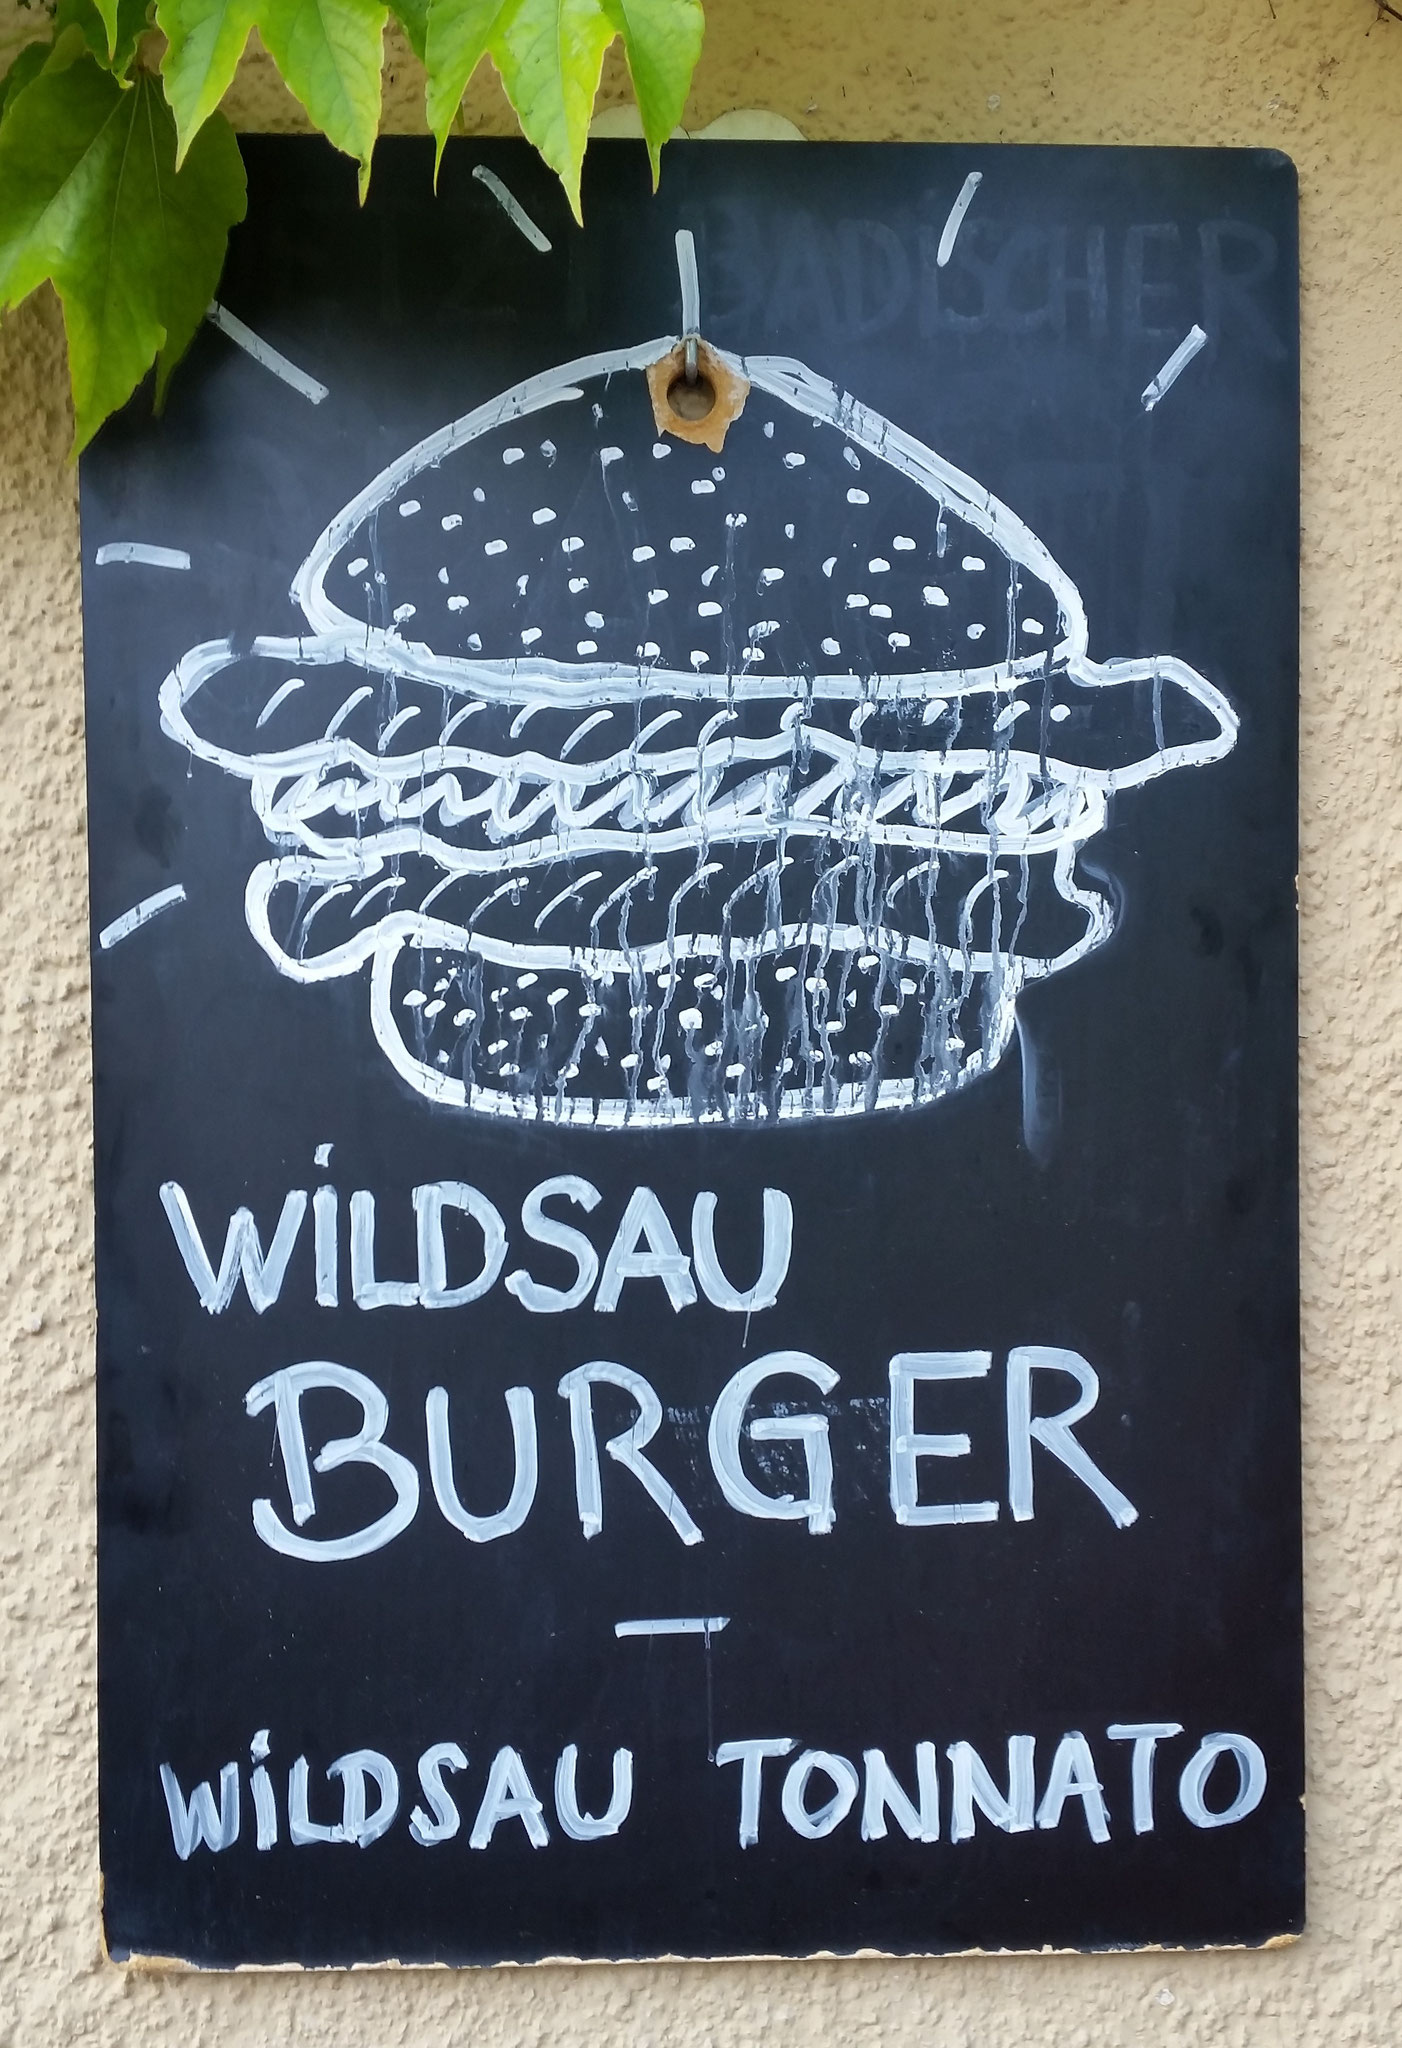 BADISCHER
WILDSAU
BURGER
—
WILDSAU TONNATO